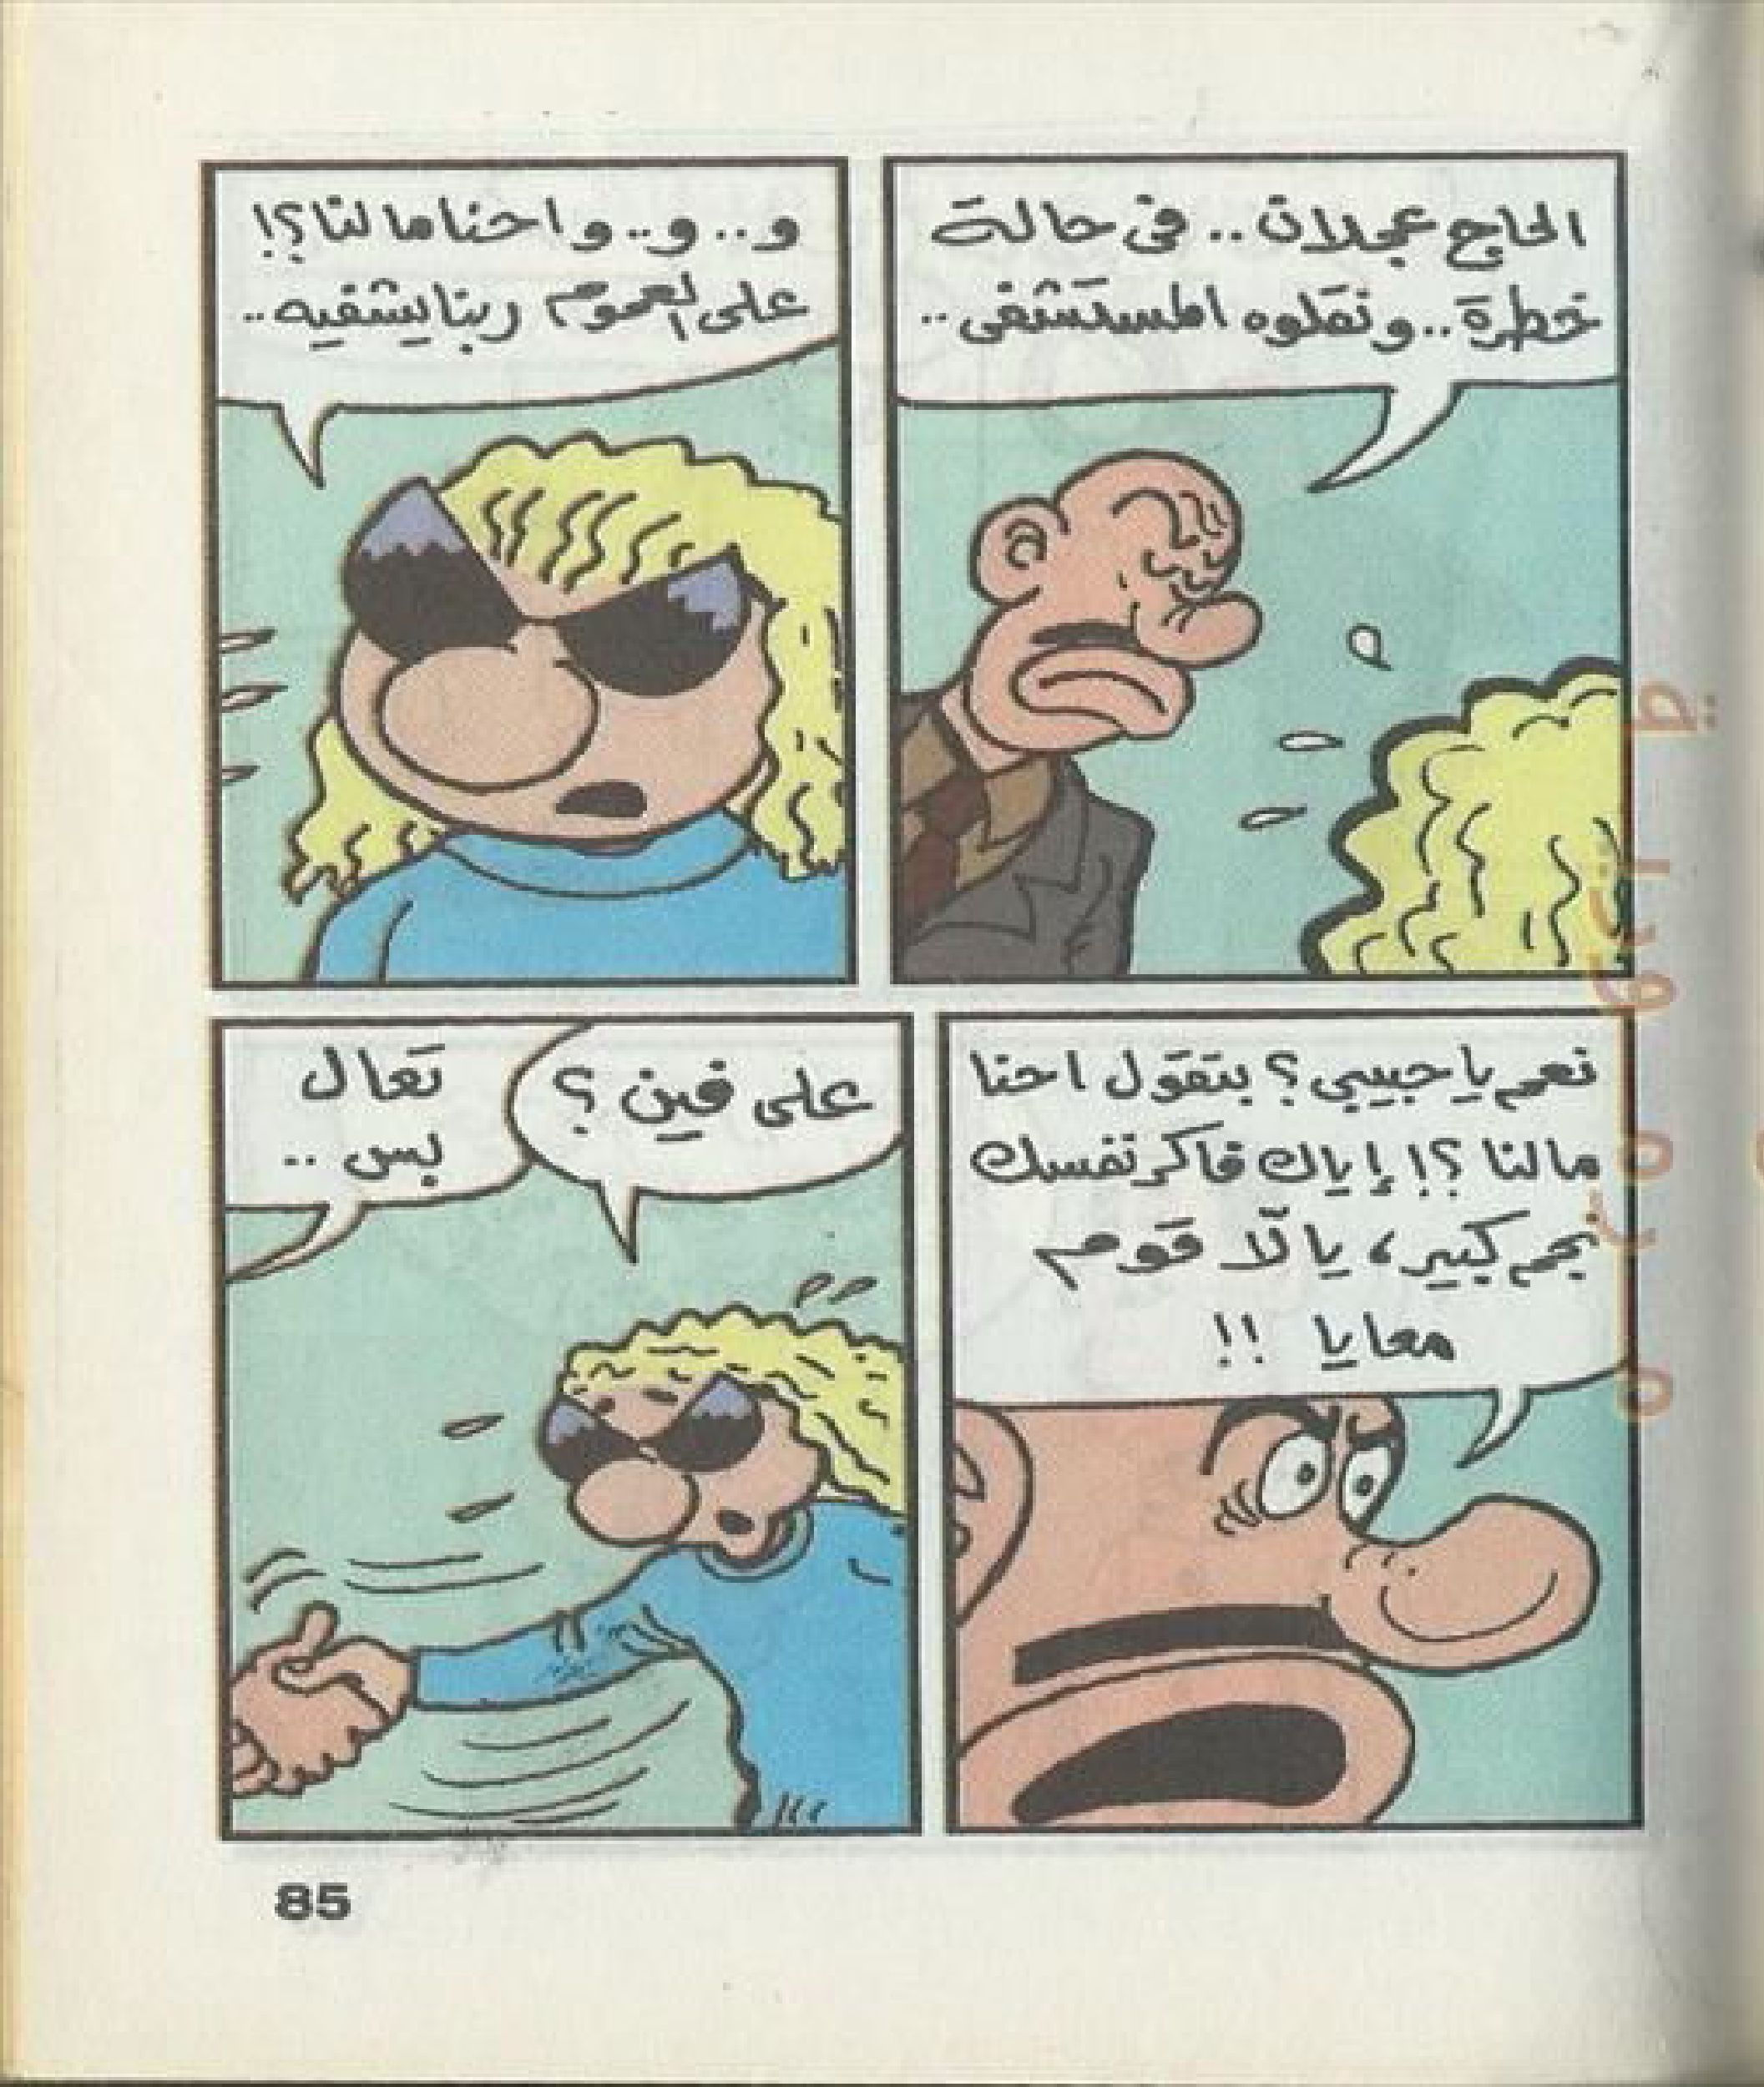 الحاج عجلان .. فى حالة
خطرة .. ونقلوه المستشفى ..
و .. و .. واحنا مالنا؟!
على العموم ربنا يشفيه ..
نعم يا حبيبي؟ بتقول احنا
مالنا؟! إياك فاكر نفسك
نجم كبير، يا لّا قوم
معايا !!
على فين؟
تعال
بس ..
85